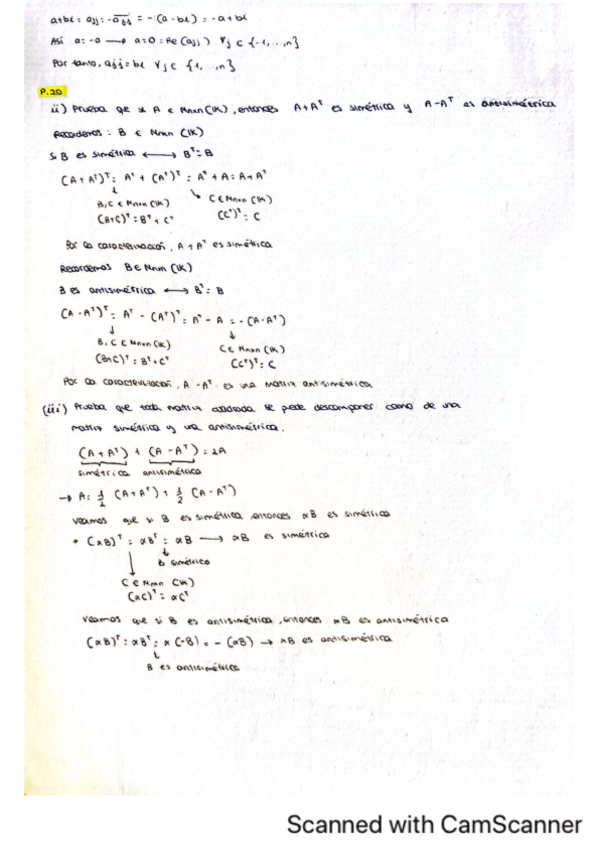 a+bi = ajj = -ajj = -(a-bi) = -a+bi
Así a = -a → a=0 = Re(ajj) ∀j ∈ {1,...,n}
Por tanto, ajj = bi ∀j ∈ {1, ,n}
P.20
ii) Prueba que si A ∈ Mnxn(IK), entonces A+Aᵀ es simétrica y A-Aᵀ es antisimétrica
Recordemos: B ∈ Mnxn (IK)
Si B es simétrica ⟷ Bᵀ=B
(A+Aᵀ)ᵀ = Aᵀ + (Aᵀ)ᵀ = Aᵀ + A = A+Aᵀ
↓ ↘
B,C ∈ Mnxn (IK) C ∈ Mnxn (IK)
(B+C)ᵀ = Bᵀ+Cᵀ (Cᵀ)ᵀ = C
Por la caracterización, A+Aᵀ es simétrica
Recordemos B ∈ Mnxn (IK)
B es antisimétrica ⟷ Bᵀ = B
(A-Aᵀ)ᵀ = Aᵀ - (Aᵀ)ᵀ = Aᵀ - A = -(A-Aᵀ)
↓ ↓
B,C ∈ Mnxn (IK) C ∈ Mnxn (IK)
(B+C)ᵀ = Bᵀ+Cᵀ (Cᵀ)ᵀ = C
Por la caracterización, A-Aᵀ es una matriz antisimétrica
(iii) Prueba que toda matriz cuadrada se puede descomponer como de una
matriz simétrica y una antisimétrica.
(A+Aᵀ) + (A-Aᵀ) = 2A
simétrica antisimétrica
→ A = 1/2 (A+Aᵀ) + 1/2 (A-Aᵀ)
Veamos que si B es simétrica, entonces αB es simétrica
* (αB)ᵀ = αBᵀ = αB → αB es simétrica
↓ ↓
B simétrica
C ∈ Mnxn (IK)
(αC)ᵀ = αCᵀ
Veamos que si B es antisimétrica, entonces αB es antisimétrica
(αB)ᵀ = αBᵀ = α(-B) = -(αB) → αB es antisimétrica
↓
B es antisimétrica
Scanned with CamScanner